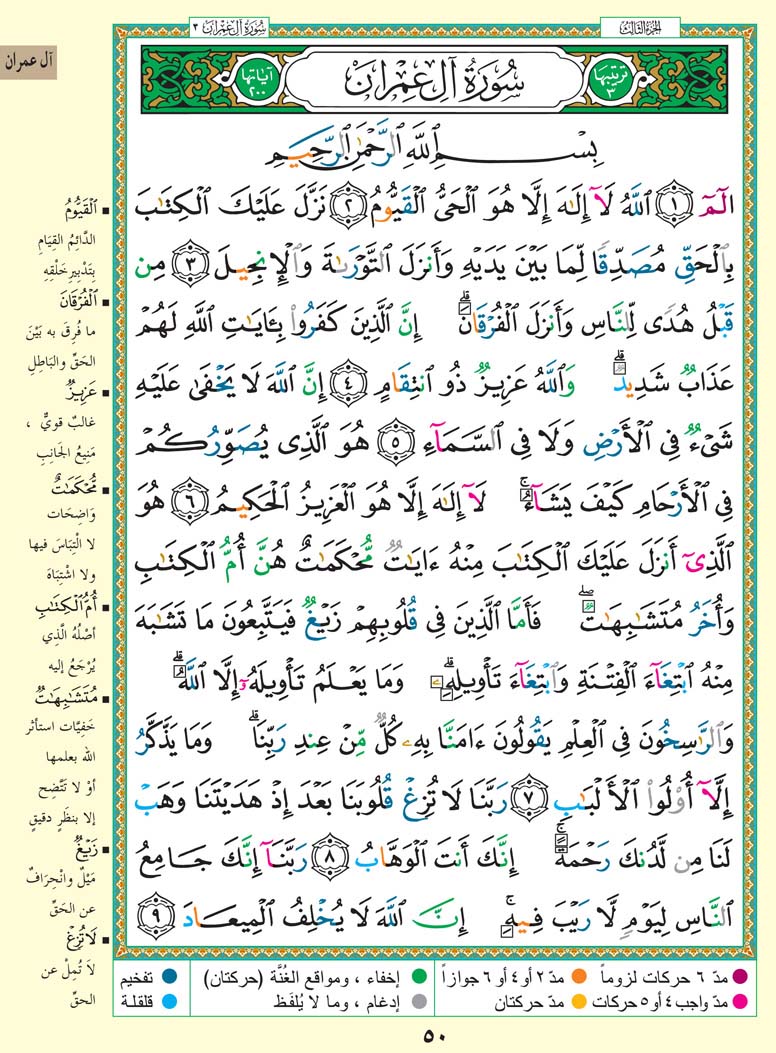 الجزء الثالث
سورة آل عمران ٣
آل عمران
ترتيبها ٣
سُورَةُ آلِ عِمْرَانَ
آياتها ٢٠٠
بِسْمِ ٱللَّهِ ٱلرَّحْمَٰنِ ٱلرَّحِيمِ
الٓمٓ ١ ٱللَّهُ لَآ إِلَٰهَ إِلَّا هُوَ ٱلْحَىُّ ٱلْقَيُّومُ ٢ نَزَّلَ عَلَيْكَ ٱلْكِتَٰبَ
بِٱلْحَقِّ مُصَدِّقًا لِّمَا بَيْنَ يَدَيْهِ وَأَنزَلَ ٱلتَّوْرَىٰةَ وَٱلْإِنجِيلَ ٣ مِن
قَبْلُ هُدًى لِّلنَّاسِ وَأَنزَلَ ٱلْفُرْقَانَ ۗ إِنَّ ٱلَّذِينَ كَفَرُوا۟ بِـَٔايَٰتِ ٱللَّهِ لَهُمْ
عَذَابٌ شَدِيدٌ ۗ وَٱللَّهُ عَزِيزٌ ذُو ٱنتِقَامٍ ٤ إِنَّ ٱللَّهَ لَا يَخْفَىٰ عَلَيْهِ
شَىْءٌ فِى ٱلْأَرْضِ وَلَا فِى ٱلسَّمَآءِ ٥ هُوَ ٱلَّذِى يُصَوِّرُكُمْ
فِى ٱلْأَرْحَامِ كَيْفَ يَشَآءُ ۚ لَآ إِلَٰهَ إِلَّا هُوَ ٱلْعَزِيزُ ٱلْحَكِيمُ ٦ هُوَ
ٱلَّذِىٓ أَنزَلَ عَلَيْكَ ٱلْكِتَٰبَ مِنْهُ ءَايَٰتٌ مُّحْكَمَٰتٌ هُنَّ أُمُّ ٱلْكِتَٰبِ
وَأُخَرُ مُتَشَٰبِهَٰتٌ ۖ فَأَمَّا ٱلَّذِينَ فِى قُلُوبِهِمْ زَيْغٌ فَيَتَّبِعُونَ مَا تَشَٰبَهَ
مِنْهُ ٱبْتِغَآءَ ٱلْفِتْنَةِ وَٱبْتِغَآءَ تَأْوِيلِهِۦ ۗ وَمَا يَعْلَمُ تَأْوِيلَهُۥٓ إِلَّا ٱللَّهُ ۗ
وَٱلرَّٰسِخُونَ فِى ٱلْعِلْمِ يَقُولُونَ ءَامَنَّا بِهِۦ كُلٌّ مِّنْ عِندِ رَبِّنَا ۗ وَمَا يَذَّكَّرُ
إِلَّآ أُو۟لُوا۟ ٱلْأَلْبَٰبِ ٧ رَبَّنَا لَا تُزِغْ قُلُوبَنَا بَعْدَ إِذْ هَدَيْتَنَا وَهَبْ
لَنَا مِن لَّدُنكَ رَحْمَةً ۚ إِنَّكَ أَنتَ ٱلْوَهَّابُ ٨ رَبَّنَآ إِنَّكَ جَامِعُ
ٱلنَّاسِ لِيَوْمٍ لَّا رَيْبَ فِيهِ ۚ إِنَّ ٱللَّهَ لَا يُخْلِفُ ٱلْمِيعَادَ ٩
▪ ٱلْقَيُّومُ
الدَّائِمُ القِيَامِ
بِتَدْبِيرِ خَلْقِهِ
▪ ٱلْفُرْقَانَ
ما فُرِقَ به بَيْنَ
الحَقِّ والبَاطِلِ
▪ عَزِيزٌ
غالبٌ قويٌّ ،
مَنِيعُ الجَانِبِ
▪ مُّحْكَمَٰتٌ
وَاضِحَات
لا الْتِبَاسَ فيها
ولا اشْتِبَاهَ
▪ أُمُّ ٱلْكِتَٰبِ
أصْلُهُ الَّذِي
يُرْجَعُ إليه
▪ مُتَشَٰبِهَٰتٌ
خَفِيَّات استأثر
الله بعلمها
أوْ لا تَتَّضِح
إلا بنظَرٍ دقيقٍ
▪ زَيْغٌ
مَيْلٌ وانْحِرَافٌ
عن الحَقِّ
▪ لَا تُزِغْ
لاَ تُمِلْ عن
الحقِّ
مدّ ٦ حركات لزوماً مدّ ٢ أو ٤ أو ٦ جوازاً إخفاء ، ومواقع الغُنَّة (حركتان) تفخيم
مدّ واجب ٤ أو ٥ حركات مدّ حركتان إدغام ، وما لا يُلفَظ قلقلة
٥٠